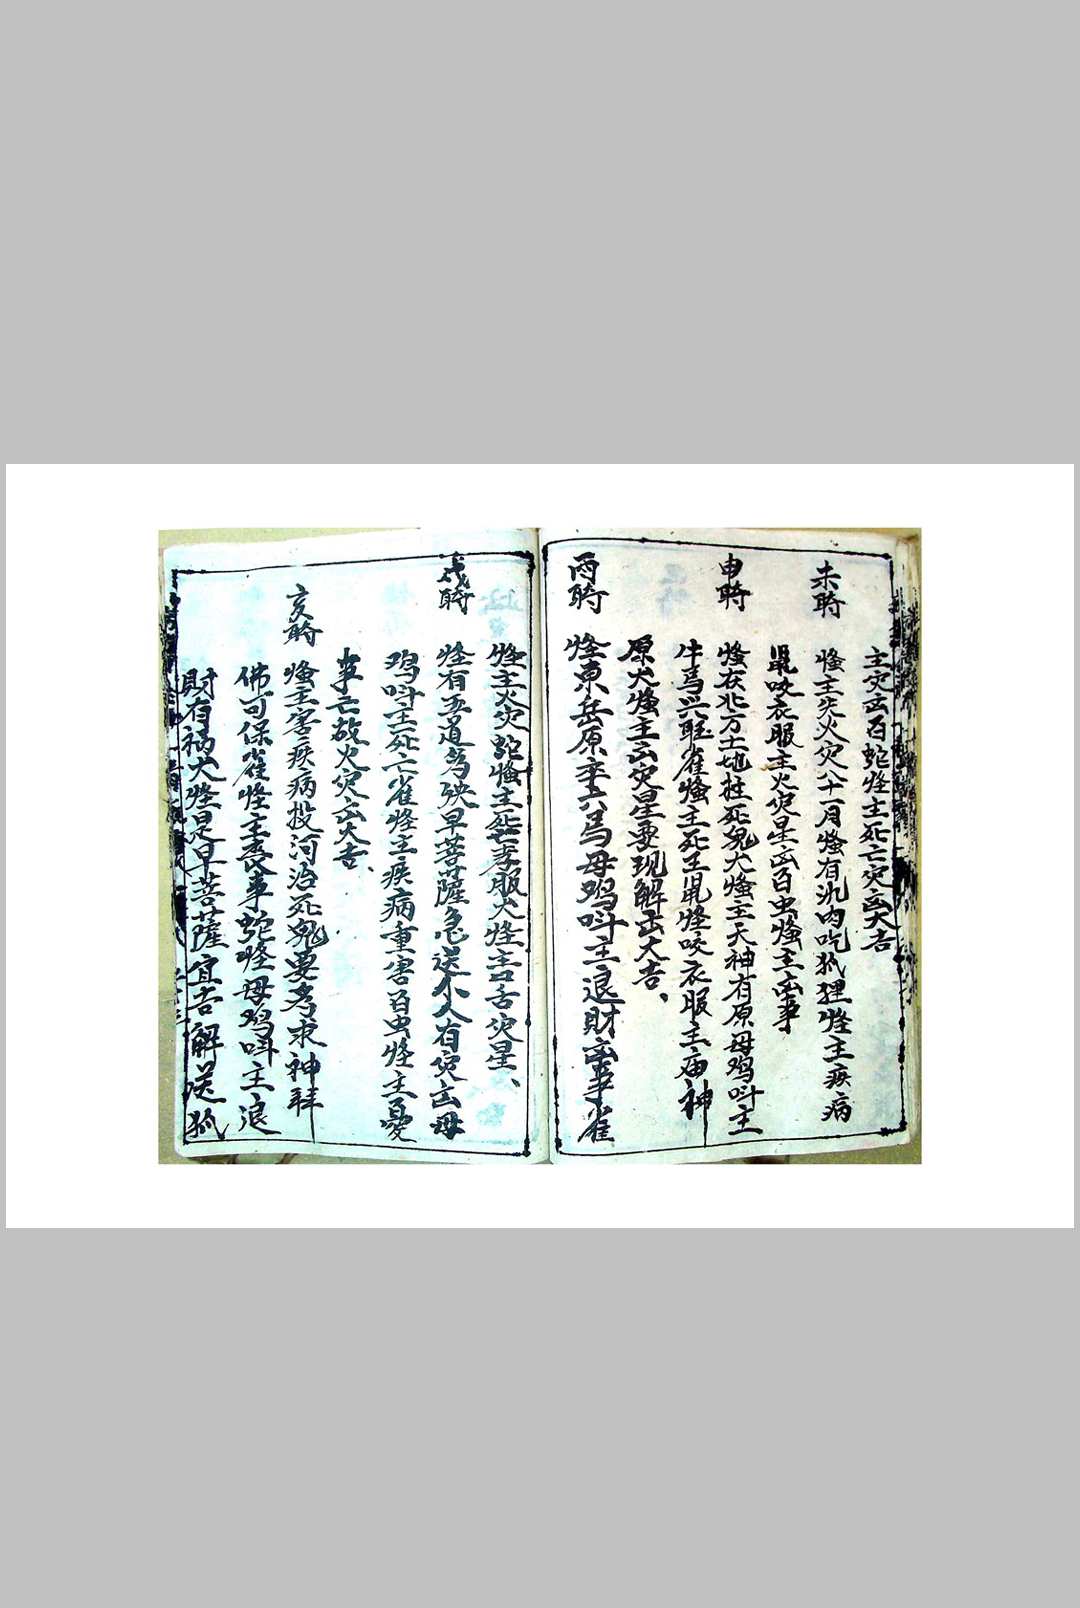 主灾凶百蛇怪主死亡灾凶大吉
未時
怪主失火灾八十一月怪有氿肉吃狐狸怪主疾病
鼠咬衣服主火灾星凶百虫怪主凶事
申時
怪在北方土地拄死鬼犬怪主天神有原母鸡叫主
牛馬兴旺雀怪主死主鼠怪咬衣服主庙神
原犬怪主凶灾星要現解凶大吉、
酉時
怪東岳原李六馬母鸡叫主退財凶事雀
怪主火灾蛇怪主死亡孝服犬怪主口舌灾星、
戌時
怪有五道為殃早菩薩急送不人有灾凶母
鸡叫主死亡雀怪主疾病重害百虫怪主憂
事亡故火灾凶大吉、
亥時
怪主害疾病投河治死鬼要考求神拜
佛可保雀怪主喪事蛇怪母鸡叫主退
財有禍犬怪是早菩薩宜吉解送狐